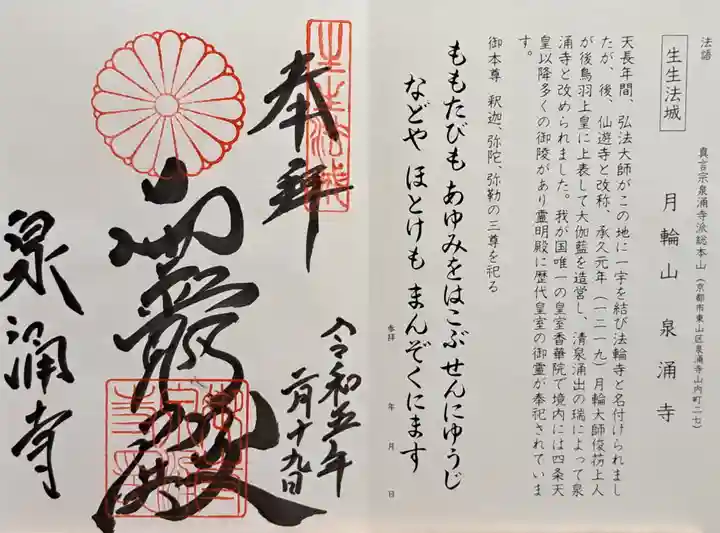 法語
生生法城
真言宗泉涌寺派総本山(京都市東山区泉涌寺山内町二七)
月輪山 泉涌寺
天長年間、弘法大師がこの地に一宇を結び法輪寺と名付けられまし
たが、後、仙遊寺と改称、承久元年(一二一九)月輪大師俊芿上人
が後鳥羽上皇に上表して大伽藍を造営し、清泉涌出の瑞によって泉
涌寺と改められました。我が国唯一の皇室香華院で境内には四条天
皇以降多くの御陵があり霊明殿に歴代皇室の御霊が奉祀されていま
す。
御本尊 釈迦、弥陀、弥勒の三尊を祀る
ももたびも あゆみをはこぶ せんにゅうじ
などや ほとけも まんぞくにます
参拝 年 月 日
奉拝
生生法城
令和五年
二月十九日
泉涌寺